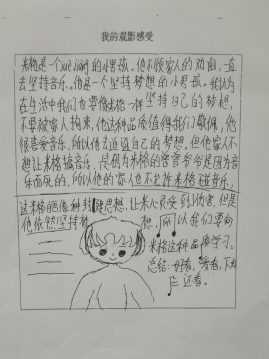 我的观影感受
米格是一个xué xiào的小男孩。他不顾家人的劝阻,一直
去坚持音乐。他是一个坚持梦想的小男孩。我认为
在生活中我们也要像米格一样坚持自己的梦想,
不要被家人拘束,他这种品质值得我们敬佩,他
很喜爱音乐,所以他去追逐自己的梦想,但他家人不
想让米格搞音乐,是因为米格的曾曾爷爷是因为音
乐而死的,所以他的家人也不允许米格碰音乐,
这米格的思想,让米人很受到了伤害,但是
他依然坚持梦想,所以我们要向
米格这种品质学习。
总结:好看,爱看,下次
还看。